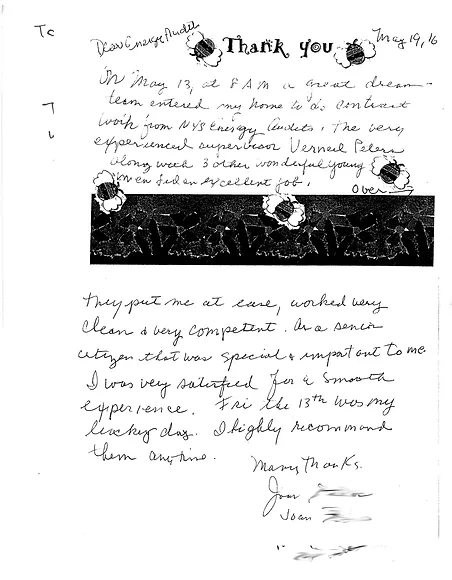 To
Dear Energy Audit
Thank you
May 19, 16
On May 13, at 8 AM a great dream-
team entered my home to do contract
work from NYS Energy Audits. The very
experienced supervisor Verneil Peters
along with 3 other wonderful young
men did an excellent job.
over →
they put me at ease, worked very
clean & very competent. As a senior
citizen that was special & important to me.
I was very satisfied for a smooth
experience. Fri the 13th was my
lucky day. I highly recommend
them anytime.
Many Thanks.
Joan
Joan